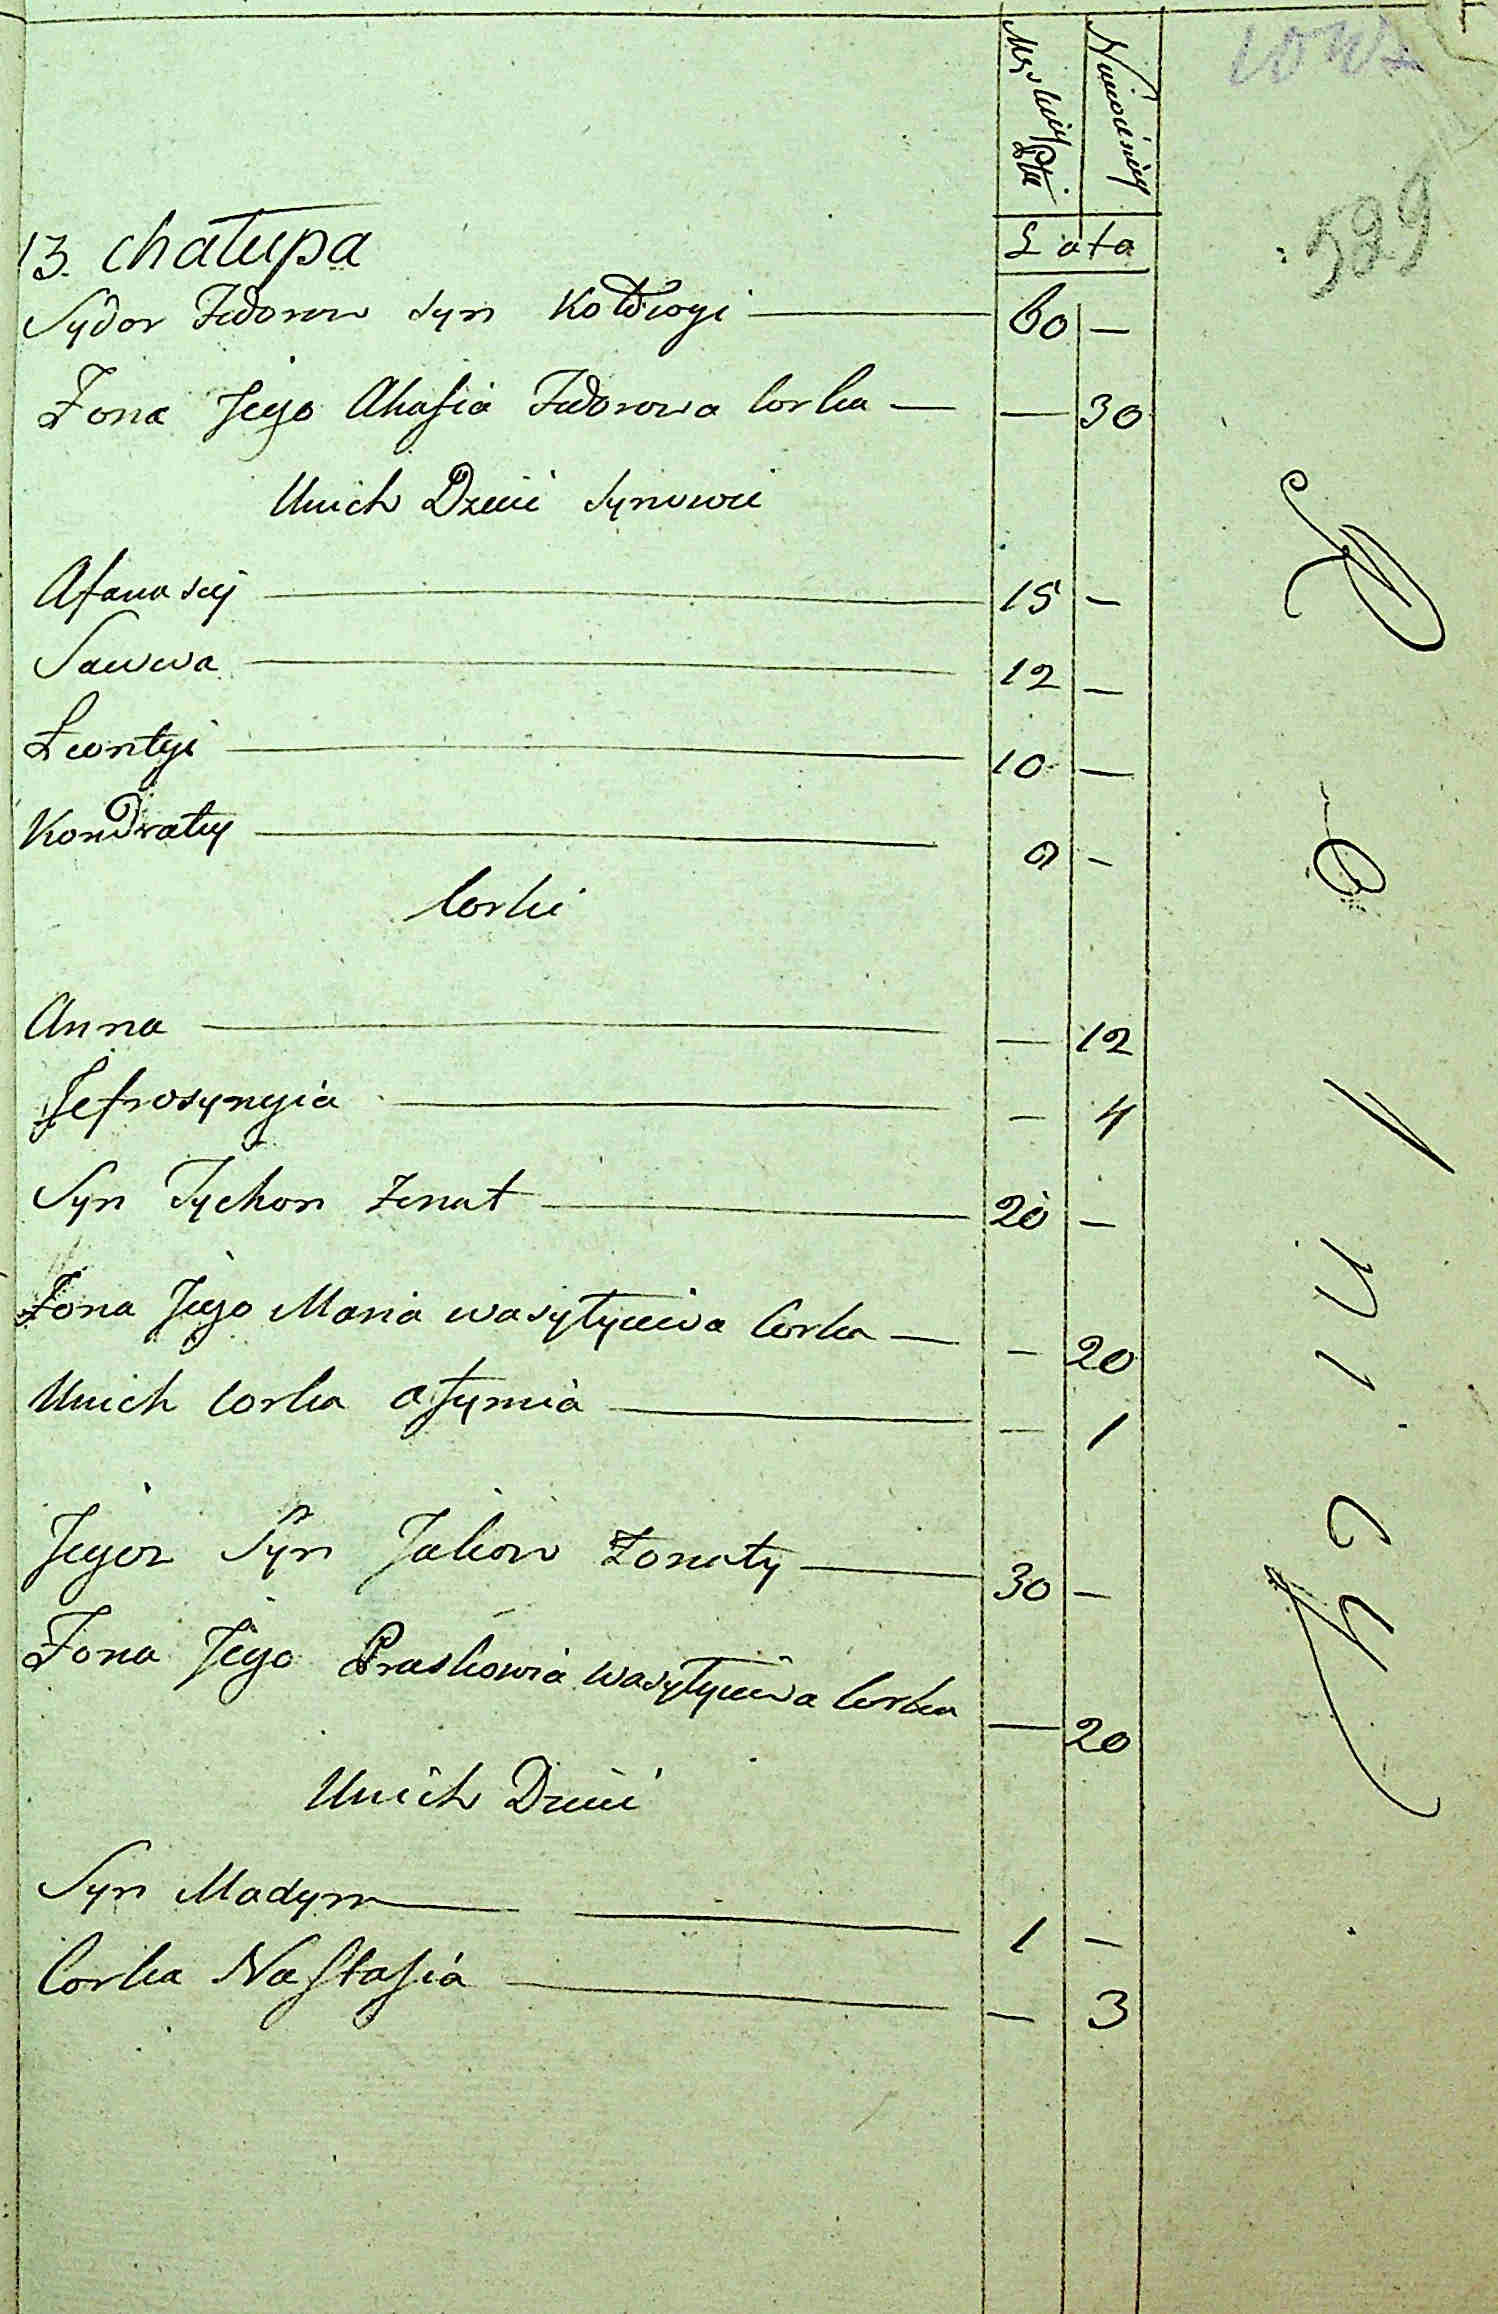 Męskiey Płci
Niewiesciey
Lata
529
13. chałupa
Sydor Fedorow syn 60 —
Żona Jego Ahafia Fedorowa Corka — — 30
Unich Dzieci Synowie
Afanasiey 15 —
Sawwa 12 —
Leontyi 10 —
Kondratey 9 —
Corki
Anna — 12
Jefrosynyia — 4
Syn Tychon żenat 20 —
Żona Jego Maria wasylyiewa Corka — — 20
Unich Corka Ofymia — 1
Jegor Syn Jakow Żonaty 30 —
Żona Jego Praskowia Wasylyiewa Corka — 20
Unich Dzieci
Syn Madym 1 —
Corka Nastasia — 3